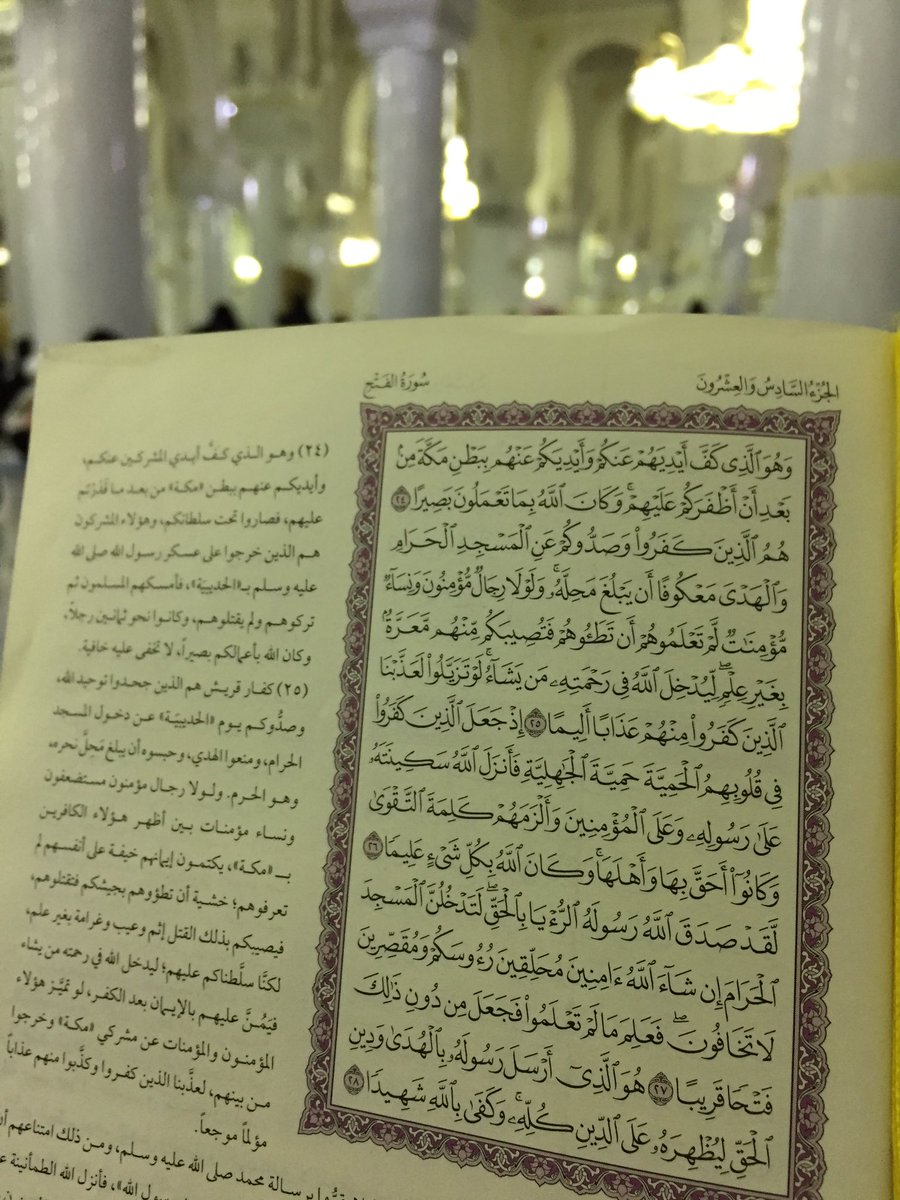 الجُزْءُ السَّادِسُ وَالعِشْرُونَ
سُورَةُ الفَتْحِ
وَهُوَ ٱلَّذِى كَفَّ أَيْدِيَهُمْ عَنكُمْ وَأَيْدِيَكُمْ عَنْهُم بِبَطْنِ مَكَّةَ مِنۢ
بَعْدِ أَنْ أَظْفَرَكُمْ عَلَيْهِمْ ۚ وَكَانَ ٱللَّهُ بِمَا تَعْمَلُونَ بَصِيرًا ٢٤
هُمُ ٱلَّذِينَ كَفَرُوا۟ وَصَدُّوكُمْ عَنِ ٱلْمَسْجِدِ ٱلْحَرَامِ
وَٱلْهَدْىَ مَعْكُوفًا أَن يَبْلُغَ مَحِلَّهُۥ ۚ وَلَوْلَا رِجَالٌ مُّؤْمِنُونَ وَنِسَآءٌ
مُّؤْمِنَـٰتٌ لَّمْ تَعْلَمُوهُمْ أَن تَطَـُٔوهُمْ فَتُصِيبَكُم مِّنْهُم مَّعَرَّةٌۢ
بِغَيْرِ عِلْمٍ ۖ لِّيُدْخِلَ ٱللَّهُ فِى رَحْمَتِهِۦ مَن يَشَآءُ ۚ لَوْ تَزَيَّلُوا۟ لَعَذَّبْنَا
ٱلَّذِينَ كَفَرُوا۟ مِنْهُمْ عَذَابًا أَلِيمًا ٢٥ إِذْ جَعَلَ ٱلَّذِينَ كَفَرُوا۟
فِى قُلُوبِهِمُ ٱلْحَمِيَّةَ حَمِيَّةَ ٱلْجَـٰهِلِيَّةِ فَأَنزَلَ ٱللَّهُ سَكِينَتَهُۥ
عَلَىٰ رَسُولِهِۦ وَعَلَى ٱلْمُؤْمِنِينَ وَأَلْزَمَهُمْ كَلِمَةَ ٱلتَّقْوَىٰ
وَكَانُوٓا۟ أَحَقَّ بِهَا وَأَهْلَهَا ۚ وَكَانَ ٱللَّهُ بِكُلِّ شَىْءٍ عَلِيمًا ٢٦
لَّقَدْ صَدَقَ ٱللَّهُ رَسُولَهُ ٱلرُّءْيَا بِٱلْحَقِّ ۖ لَتَدْخُلُنَّ ٱلْمَسْجِدَ
ٱلْحَرَامَ إِن شَآءَ ٱللَّهُ ءَامِنِينَ مُحَلِّقِينَ رُءُوسَكُمْ وَمُقَصِّرِينَ
لَا تَخَافُونَ ۖ فَعَلِمَ مَا لَمْ تَعْلَمُوا۟ فَجَعَلَ مِن دُونِ ذَٰلِكَ
فَتْحًا قَرِيبًا ٢٧ هُوَ ٱلَّذِىٓ أَرْسَلَ رَسُولَهُۥ بِٱلْهُدَىٰ وَدِينِ
ٱلْحَقِّ لِيُظْهِرَهُۥ عَلَى ٱلدِّينِ كُلِّهِۦ ۚ وَكَفَىٰ بِٱللَّهِ شَهِيدًا ٢٨
(٢٤) وهو الذي كفَّ أيدي المشركين عنكم،
وأيديكم عنهم ببطن «مكة» من بعد ما قَدَرْتم
عليهم، فصاروا تحت سلطانكم، وهؤلاء المشركون
هم الذين خرجوا على عسكر رسول الله صلى الله
عليه وسلم بـ«الحديبية»، فأمسكهم المسلمون ثم
تركوهم ولم يقتلوهم، وكانوا نحو ثمانين رجلاً،
وكان الله بأعمالكم بصيراً، لا تخفى عليه خافية.
(٢٥) كفار قريش هم الذين جحدوا توحيد الله،
وصدُّوكم يوم «الحديبية» عن دخول المسجد
الحرام، ومنعوا الهدي، وحبسوه أن يبلغ مَحِلَّ نحره،
وهو الحرم. ولولا رجال مؤمنون مستضعفون
ونساء مؤمنات بين أظهر هؤلاء الكافرين
بـ «مكة»، يكتمون إيمانهم خيفة على أنفسهم لم
تعرفوهم؛ خشية أن تطؤوهم بجيشكم فتقتلوهم،
فيصيبكم بذلك القتل إثم وعيب وغرامة بغير علم،
لكنَّا سلَّطناكم عليهم؛ ليدخل الله في رحمته من يشاء
فيَمُنَّ عليهم بالإيمان بعد الكفر، لو تميَّز هؤلاء
المؤمنون والمؤمنات عن مشركي «مكة» وخرجوا
من بينهم، لعذَّبنا الذين كفروا وكذَّبوا منهم عذاباً
مؤلماً موجعاً.
برسالة محمد صلى الله عليه وسلم، ومن ذلك امتناعهم
الله»، فأنزل الله الطمأنينة